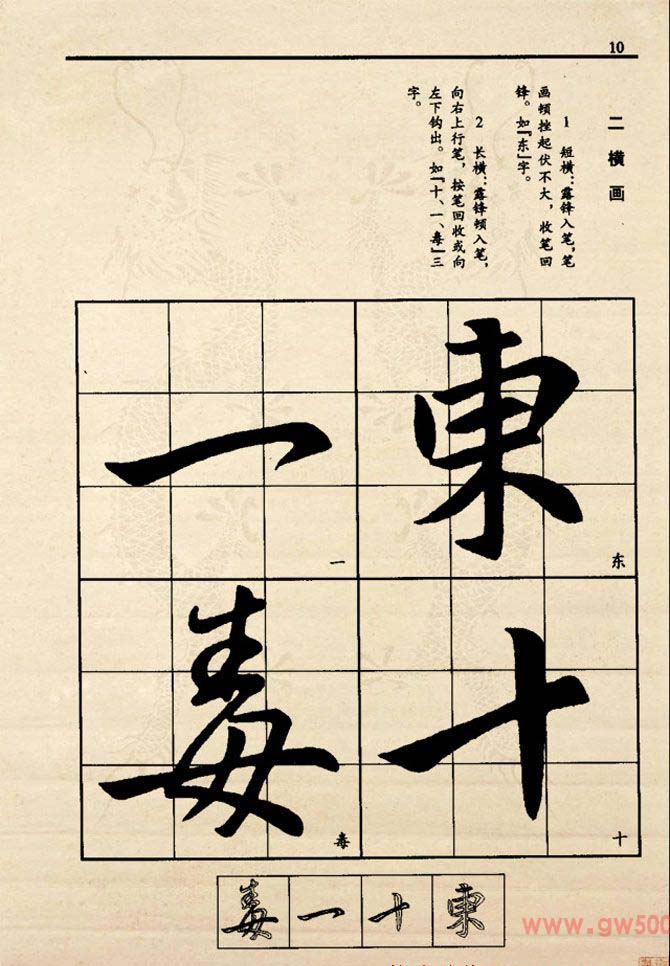 10
二 横画
1 短横：露锋入笔，笔
画顿挫起伏不大，收笔回
锋。如『东』字。
2 长横：露锋顿入笔，
向右上行笔，按笔回收或向
左下钩出。如『十、一、毒』三
字。
東
东
一
一
十
十
毒
毒
東
十
一
毒
www.gw500